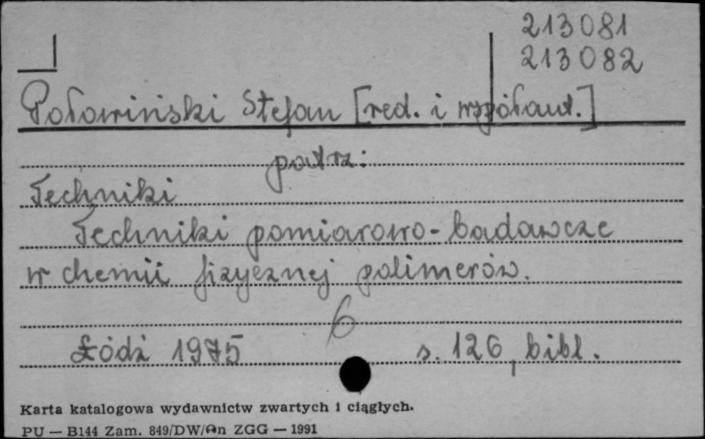 213081
213082
Połowiński Stefan [red. i współaut.]
patrz:
Techniki
Techniki pomiarowo-badawcze
w chemii fizycznej polimerów.
6
Łódź 1975 s. 126, bibl.
Karta katalogowa wydawnictw zwartych i ciągłych.
PU — B144 Zam. 849/DW/An ZGG — 1991